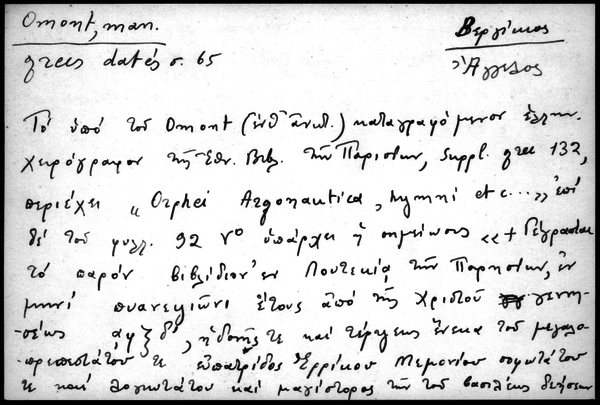 Omont, man.
grecs datés σ. 65
Βεργίκιος
Ἄγγελος
Τό ὑπό τοῦ Omont (ἐνθ' ἀνωτ.) καταγραφόμενον ἑλλην.
χειρόγραφον τῆς Ἐθν. Βιβ. τῶν Παρισίων, Suppl. grec 132,
περιέχει „ Orphei Argonautica, hymni etc... „ ἐπί
δέ τοῦ φυλλ. 92 v° ὑπάρχει ἡ σημείωσις «+ Γέγραπται
τό παρόν βιβλίδιον ἐν Λουτεκίᾳ τῶν Παρησίων, ἐν
μηνί πυανεψιῶνι ἔτους ἀπό τῆς Χριστοῦ γενν-
-σέως αφξδ', ἡδονῆς τε καί τέρψεως ἕνεκα τοῦ μεγαλο-
-πρεπεστάτου τε εὐπατρίδος Ἐρρίκου Μεμονίου σοφωτάτου
τε καί λογιωτάτου καί μαγίστορος τῶν τοῦ βασιλέως δεήσεων